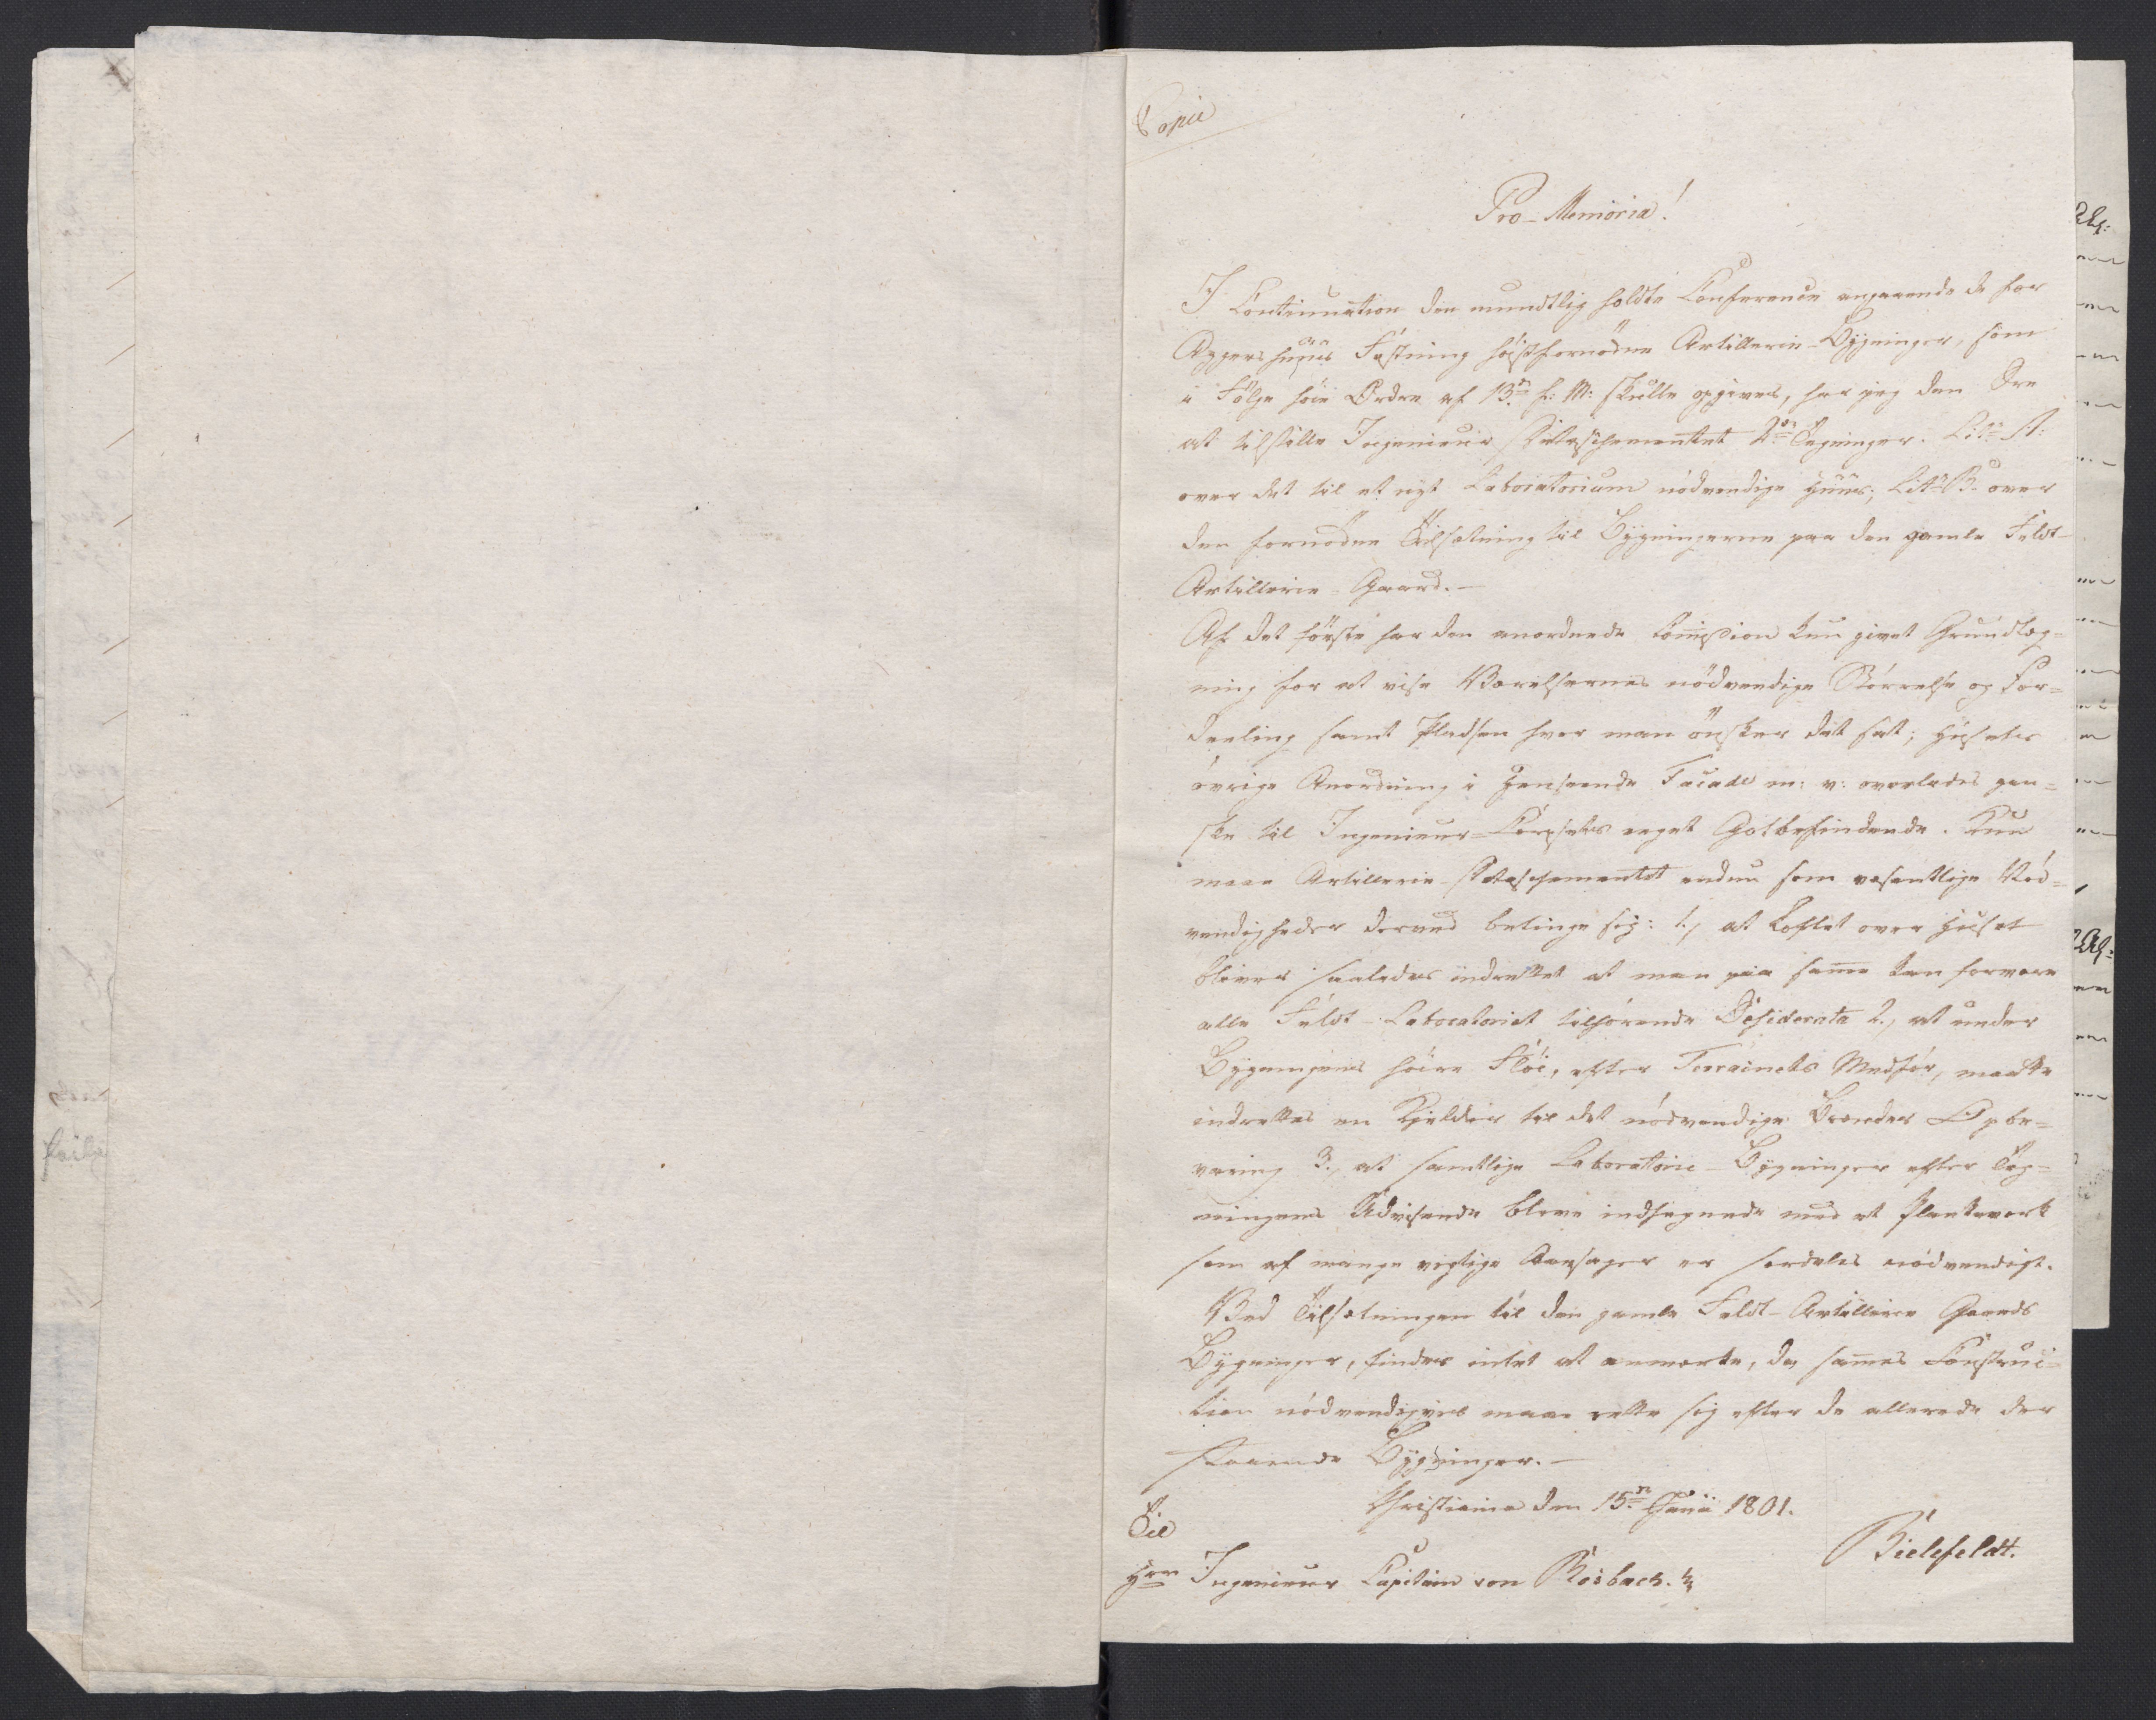 Copie
Pro-Memoria!
I Continuation den mundtlig holdte Conference angaaende de for
Aggershuus Fæstning høistfornødne Artillerie-Bygninger, som
i Følge høie Ordre af 13de f: M: skulle opgives, har jeg den Ære
at tilstille Ingenieur Detaschementet 2de Tegninger. Litr A:
over det til et nyt Laboratorium nødvendige Huus; Litr B. over
den fornødne Tilsætning til Bygningerne paa den gamle Feldt-
Artillerie-Gaard.-
Af det første har den anordnede Commission kun givet Grundteg=
ning for at vise Værelsernes nødvendige Størrelse og For=
deeling samt Pladsen hvor man ønsker det sat; Husets
øvrige Anordning i Henseende Facade m: v: overlades gan=
ske til Ingenieur-Corpsets eget Gotbefindende. Kun
maae Artillerie-Detaschementet endnu som væsentlige Nød=
vendigheder derved betinge sig: 1., at Loftet over Huset
bliver saaledes indrettet at man paa samme kan forvare
alle Feldt-Laboratoriet tilhørende Desiderata 2., at under
Bygningens høire Fløi, efter Terrainets Medfør, maatte
indrettes en Kjelder til det nødvendige Brændes Opbe=
varing 3., at samtlige Laboratorie-Bygninger efter Teg=
ningens Udvisende bleve indhegnede med et Plankeværk
som af mange vigtige Aarsager er særdeles nødvendigt.
Ved Tilsætningen til den gamle Feldt-Artillerie Gaards
Bygninger, findes intet at anmærke, da sammes Construc=
tion nødvendigviis maae rette sig efter de allerede der
staaende Bygninger.-
Christiania den 15de Junii 1801.
Bielefeldt.
Til
Hrr Ingenieur Capitain von Rosbach.